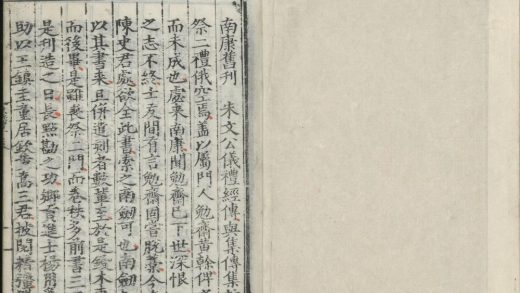 南康舊刊 朱文公儀禮經傳與集傳集
祭二禮俄空焉蓋以屬門人勉齋黃榦俾
而未成也虙来南康聞勉齋已下世深恨
之志不終士友間有言勉齋固嘗脫藁今
陳史君處欲全此書索之南劍可也南劍
以其書来且併遣刻者數輩至於是鋟木
而後畢是雖喪祭二門而卷秩多前書三
是刊造之日長點勘之功鄉貢進士楊
助以工 董居 三君披閱精